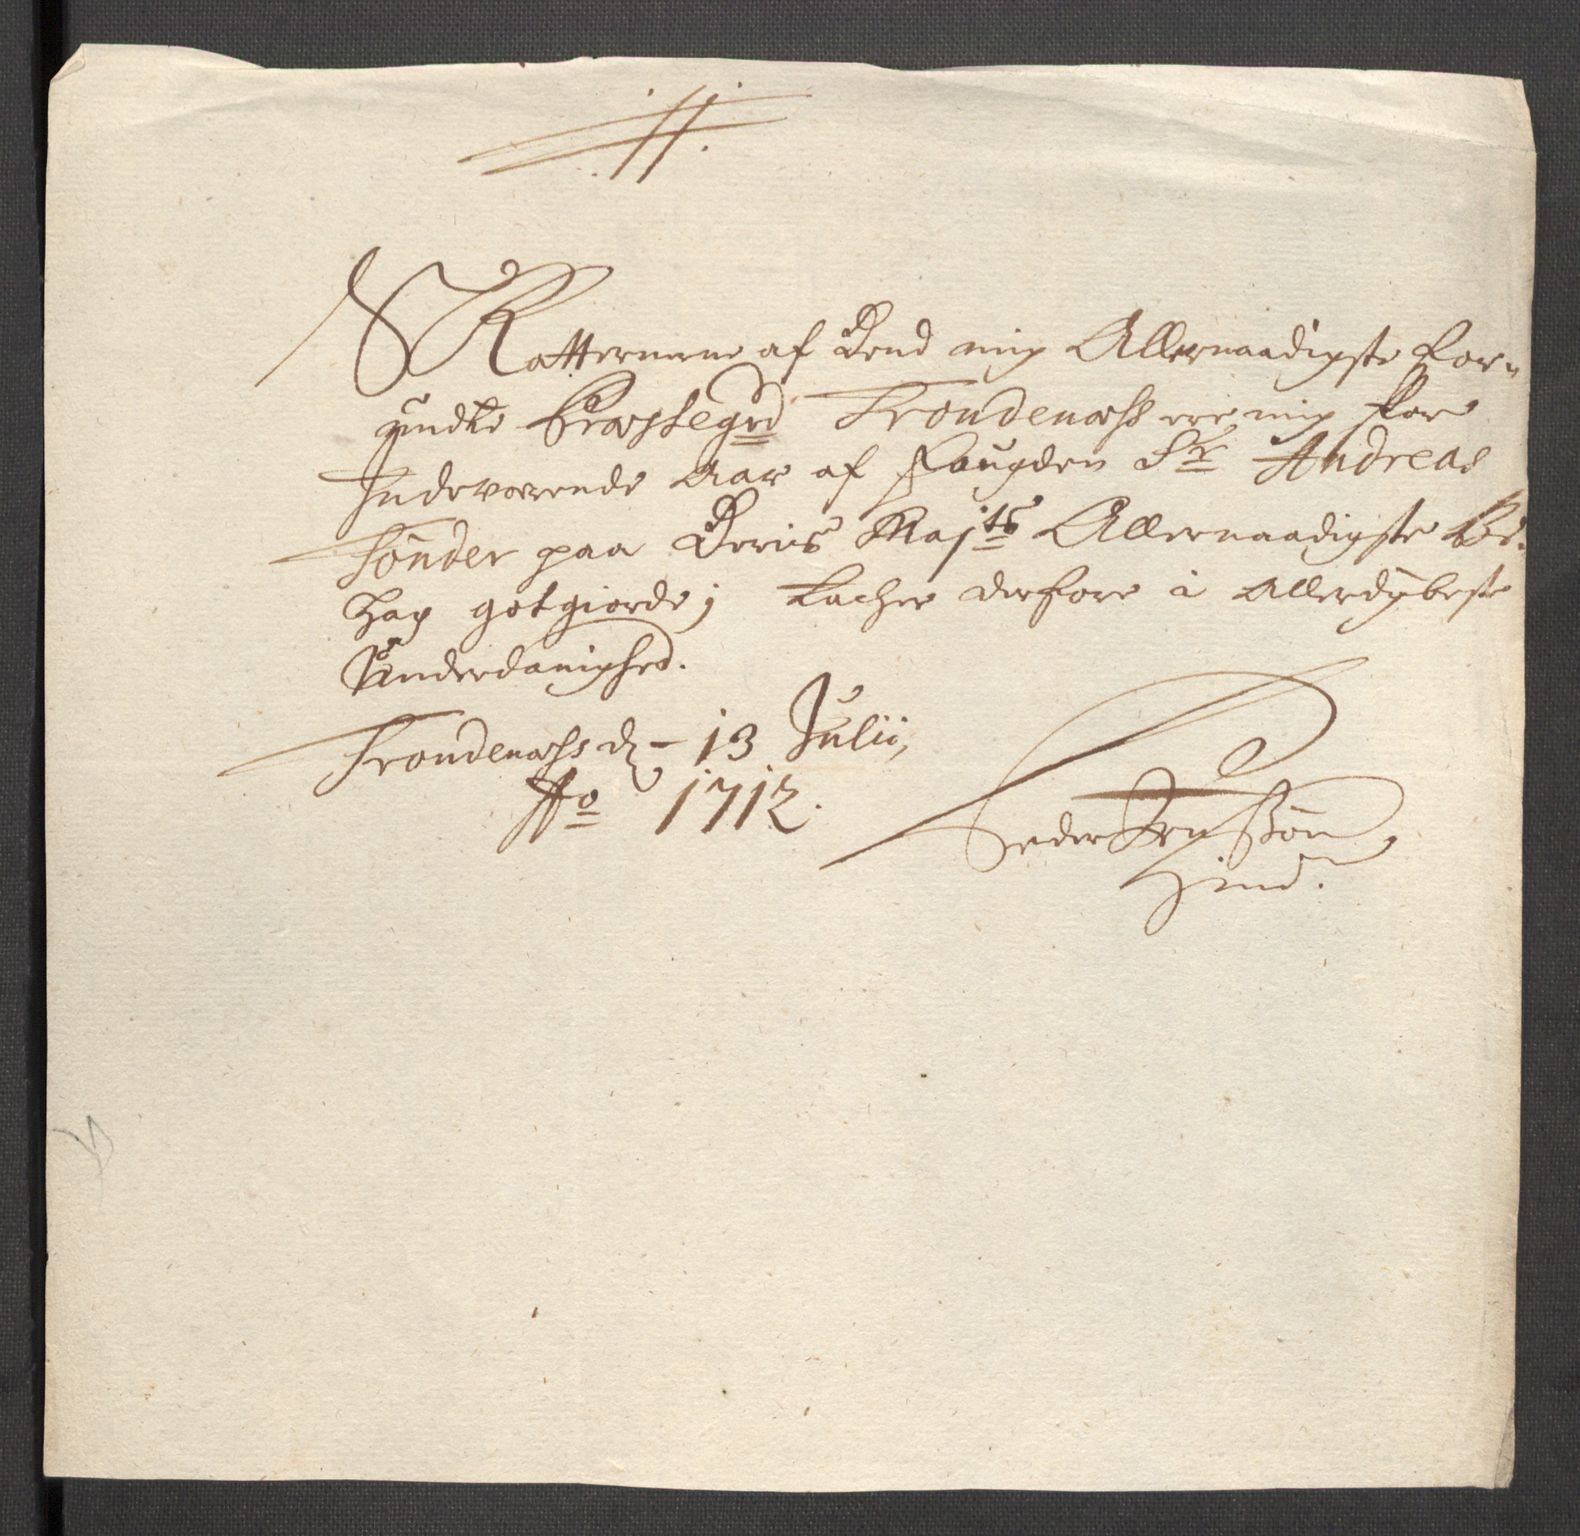 Skatterne af Dend mig Allernaadigste for-
undte Præstegrd Trondenæss ere mig for
Indeværende Aar af Fougden Sr Andreas
Tönder paa Deris Majts Allernaadigste Be-
hag gotgiorde; Tacher derfore i Allerdÿbeste
Underdanighed.
Trondenæss d. 13 Julii,
Ao 1712.
Peder Jensßön
Hind.